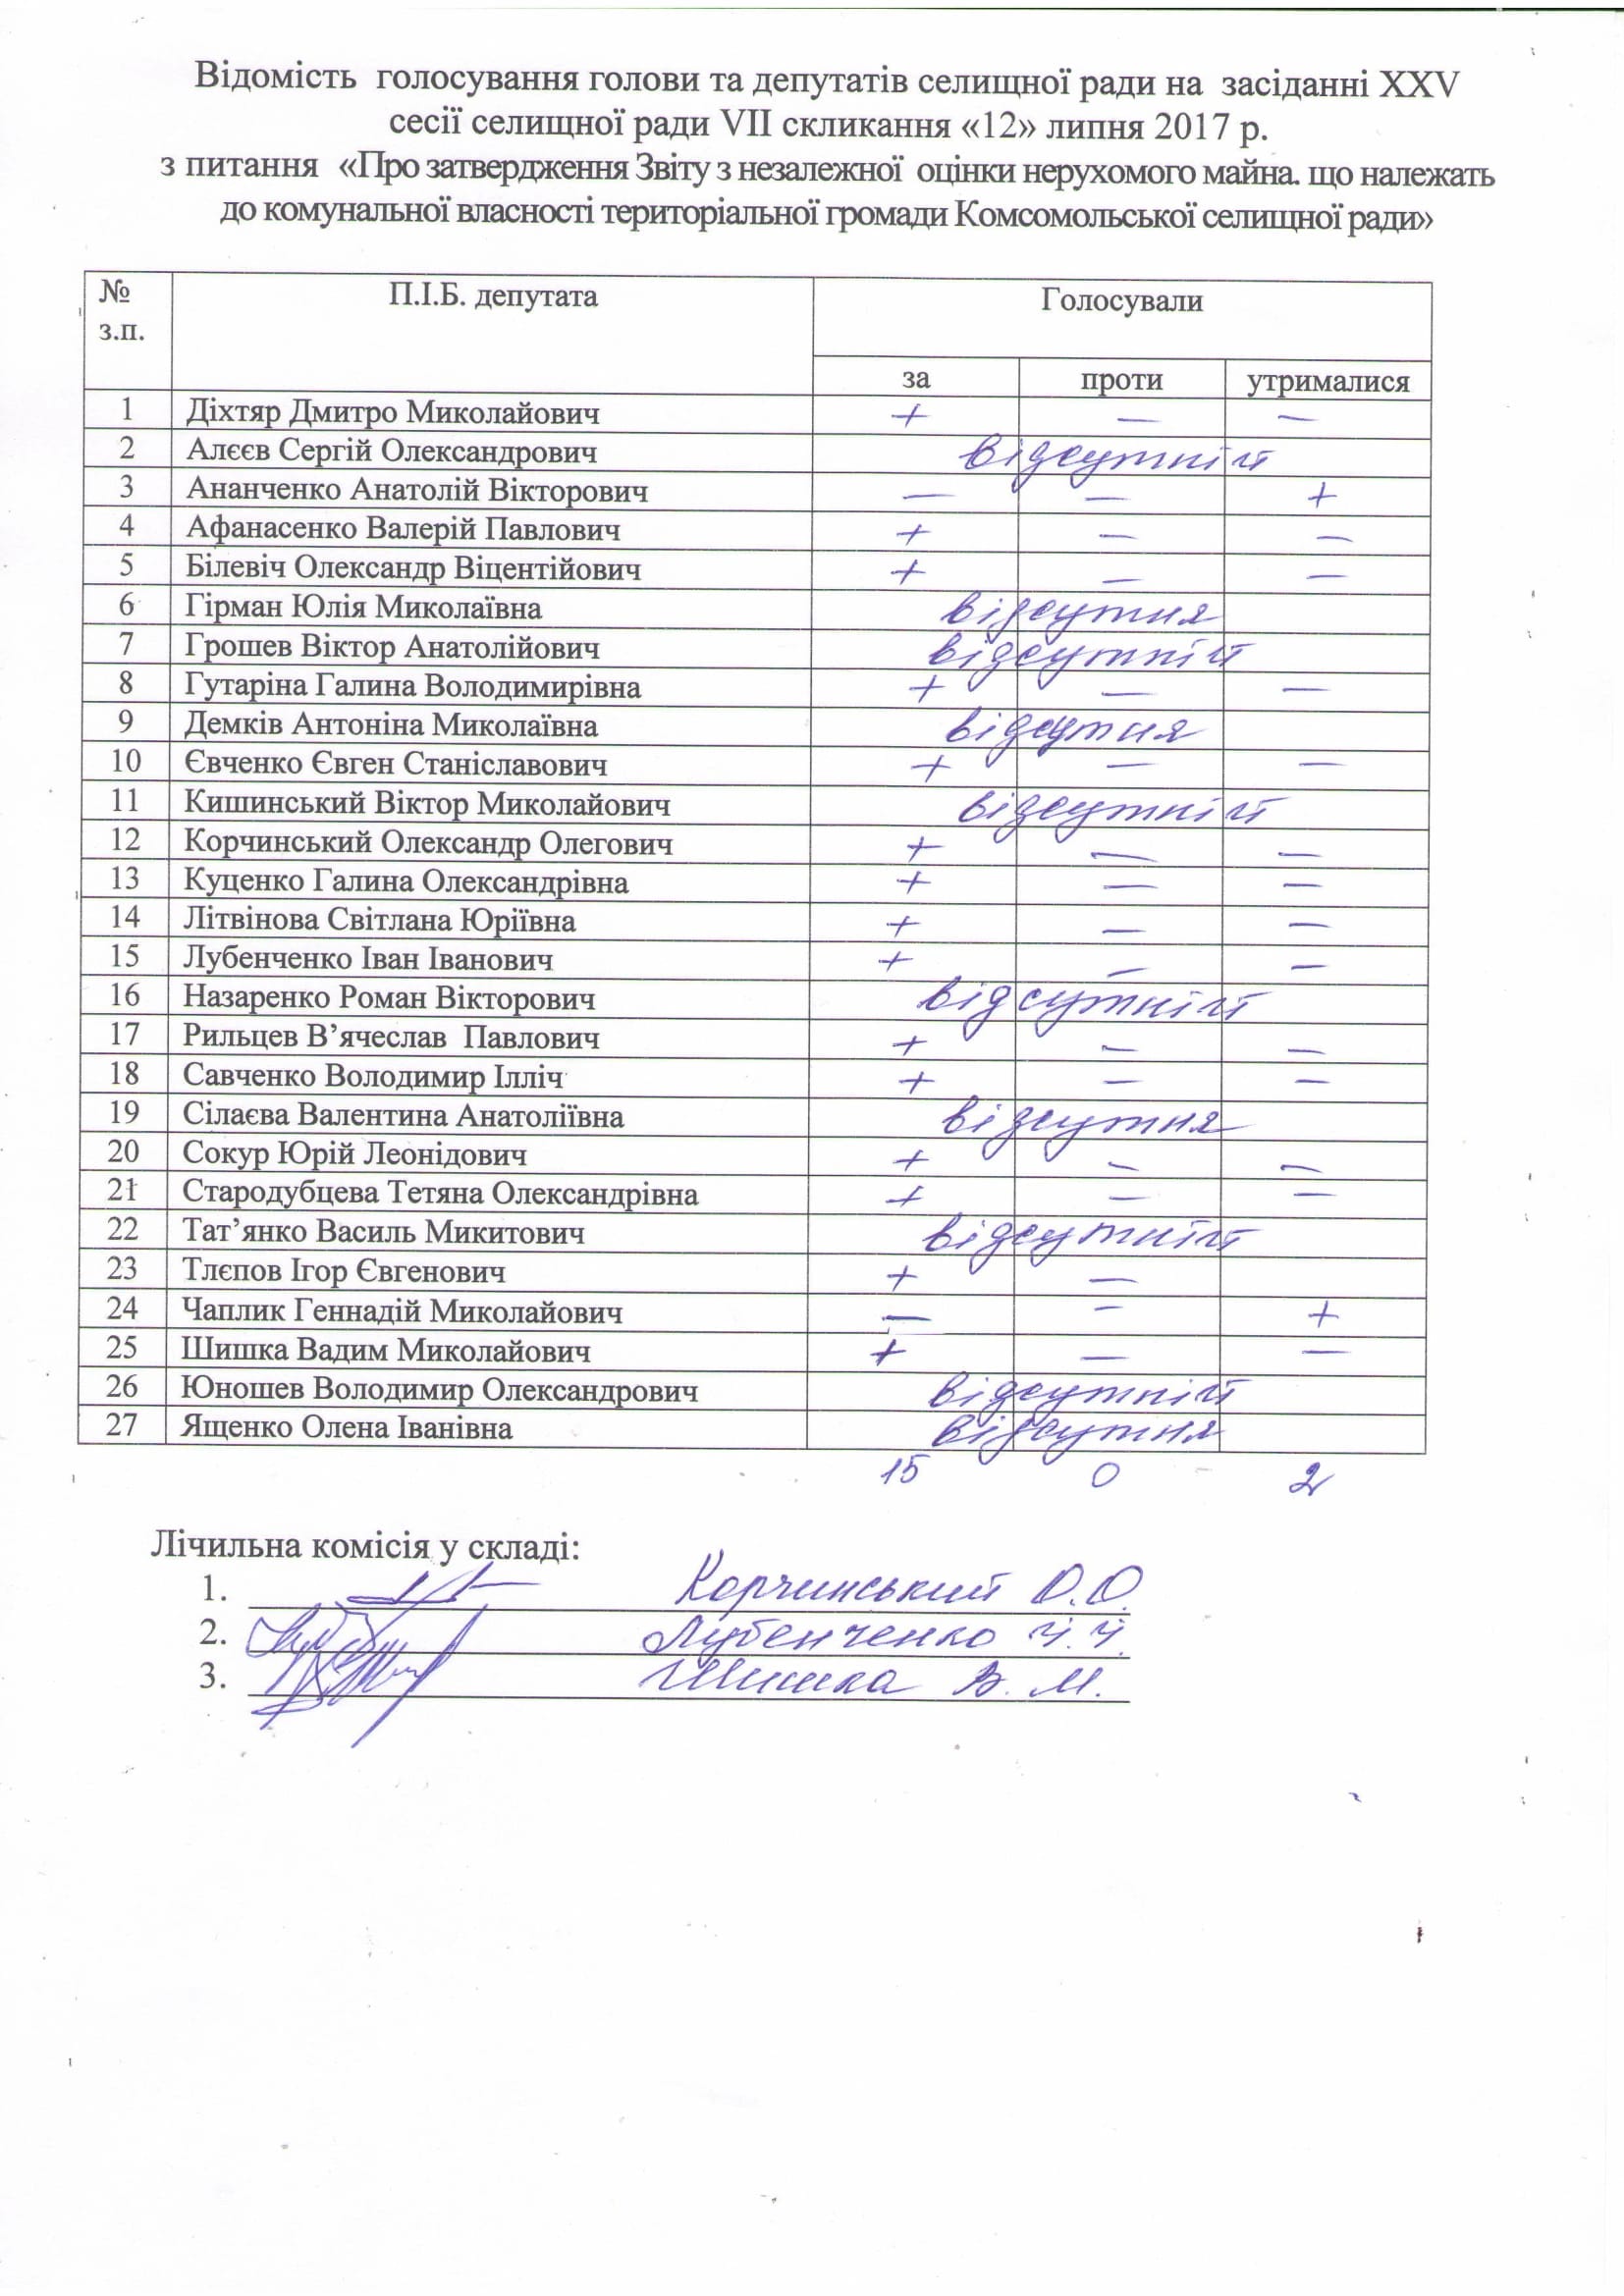 Відомість голосування голови та депутатів селищної ради на засіданні XXV
сесії селищної ради VII скликання «12» липня 2017 р.
з питання «Про затвердження Звіту з незалежної оцінки нерухомого майна. що належать
до комунальної власності територіальної громади Комсомольської селищної ради»
№ з.п. П.І.Б. депутата Голосували
за проти утрималися
1 Діхтяр Дмитро Миколайович + — —
2 Алєєв Сергій Олександрович відсутній
3 Ананченко Анатолій Вікторович — — +
4 Афанасенко Валерій Павлович + — —
5 Білевіч Олександр Віцентійович + — —
6 Гірман Юлія Миколаївна відсутня
7 Грошев Віктор Анатолійович відсутній
8 Гутаріна Галина Володимирівна + — —
9 Демків Антоніна Миколаївна відсутня
10 Євченко Євген Станіславович + — —
11 Кишинський Віктор Миколайович відсутній
12 Корчинський Олександр Олегович + — —
13 Куценко Галина Олександрівна + — —
14 Літвінова Світлана Юріївна + — —
15 Лубенченко Іван Іванович + — —
16 Назаренко Роман Вікторович відсутній
17 Рильцев В’ячеслав Павлович + — —
18 Савченко Володимир Ілліч + — —
19 Сілаєва Валентина Анатоліївна відсутня
20 Сокур Юрій Леонідович + — —
21 Стародубцева Тетяна Олександрівна + — —
22 Тат’янко Василь Микитович відсутній
23 Тлєпов Ігор Євгенович + —
24 Чаплик Геннадій Миколайович — — +
25 Шишка Вадим Миколайович + — —
26 Юношев Володимир Олександрович відсутній
27 Ященко Олена Іванівна відсутня
15 0 2
Лічильна комісія у складі:
1. Корчинський О.О.
2. Лубенченко І.І.
3. Шишка В.М.